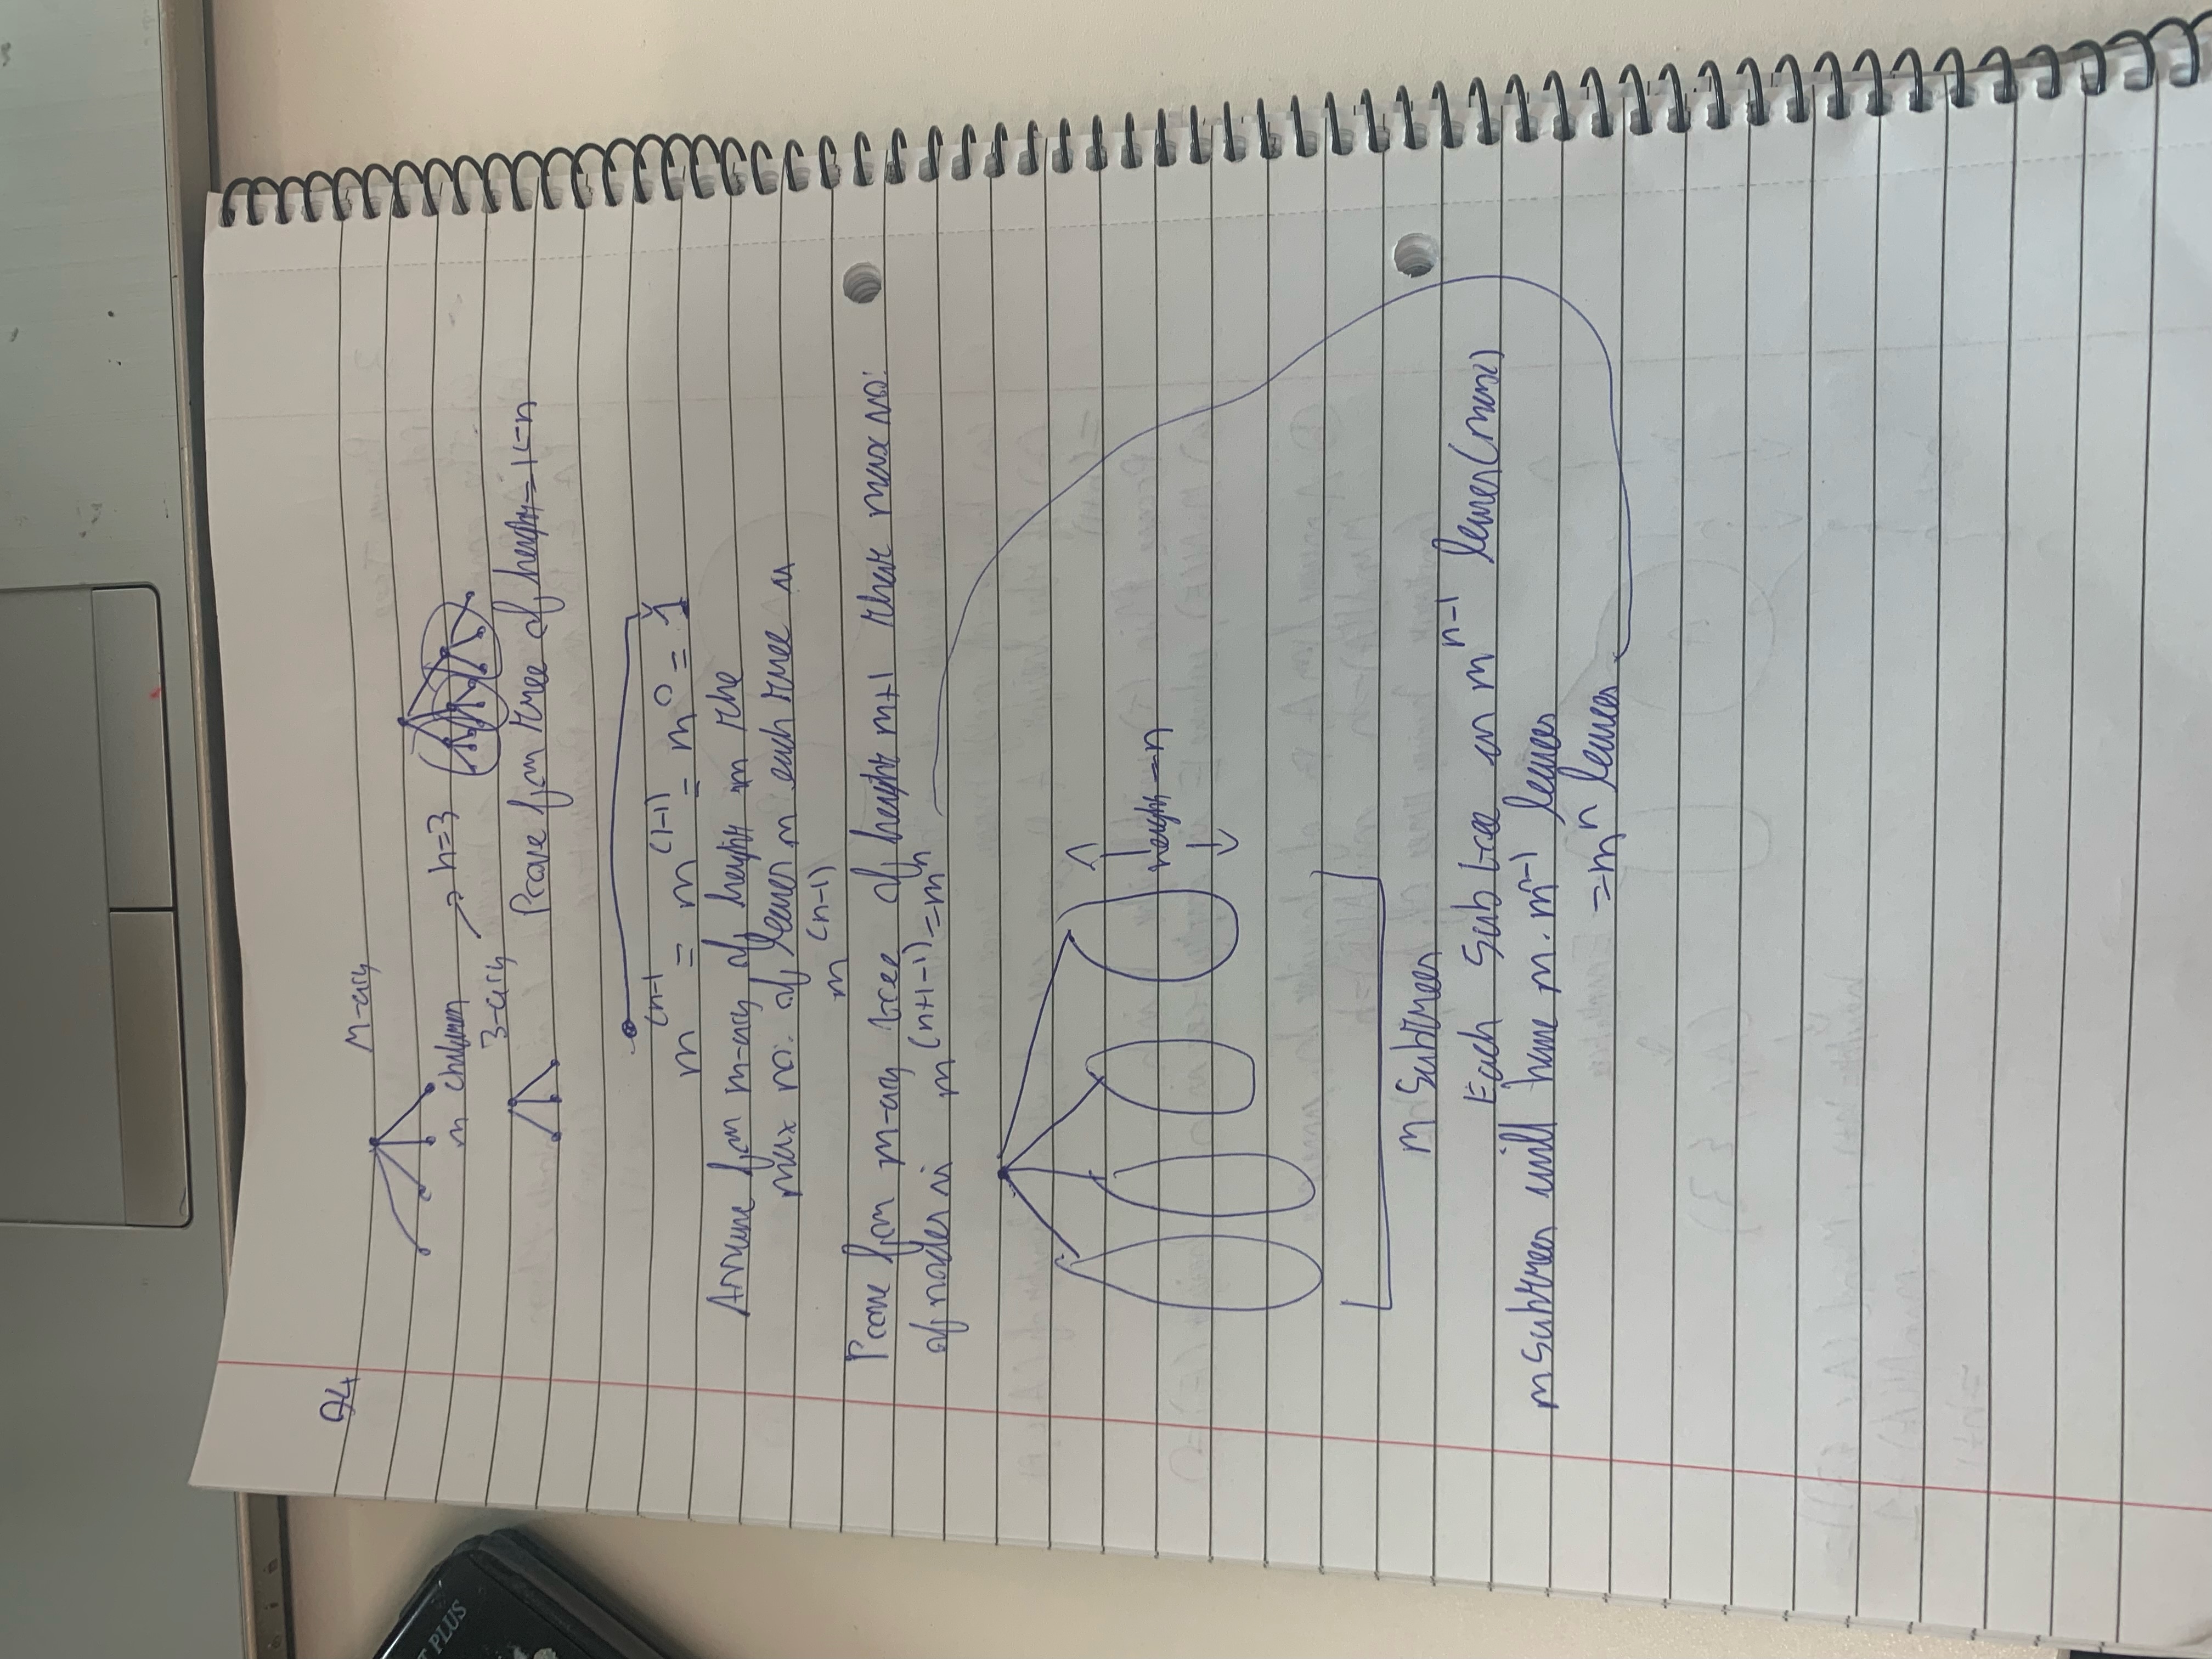 T PLUS
Q4
M-ary
m children
3-ary → h=3
Prove for tree of height = 1 ← n
m^(n-1 = m^(1-1) = m^0 = 1
Assume for m-ary of height m the
max no: of leaves in each tree is
m^(n-1)
Prove for m-ary tree of height m+1 that max no:
of nodes is m^(n+1-1) = m^n
height = n
m subtrees
Each sub tree m^n-1 leaves (max)
m subtrees will have m . m^n-1 leaves
= m^n leaves